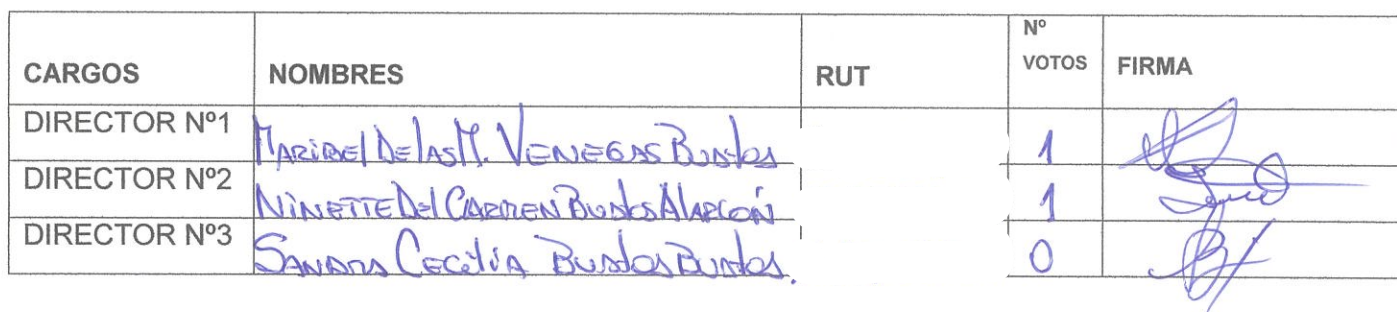 CARGOS NOMBRES RUT Nº VOTOS FIRMA
DIRECTOR Nº1 MARIBEL DE LAS M. VENEGAS BUSTOS 1
DIRECTOR Nº2 NINETTE DEL CARMEN BUSTOS ALARCÓN 1
DIRECTOR Nº3 SANDRA CECILIA BUSTOS BUSTOS. 0